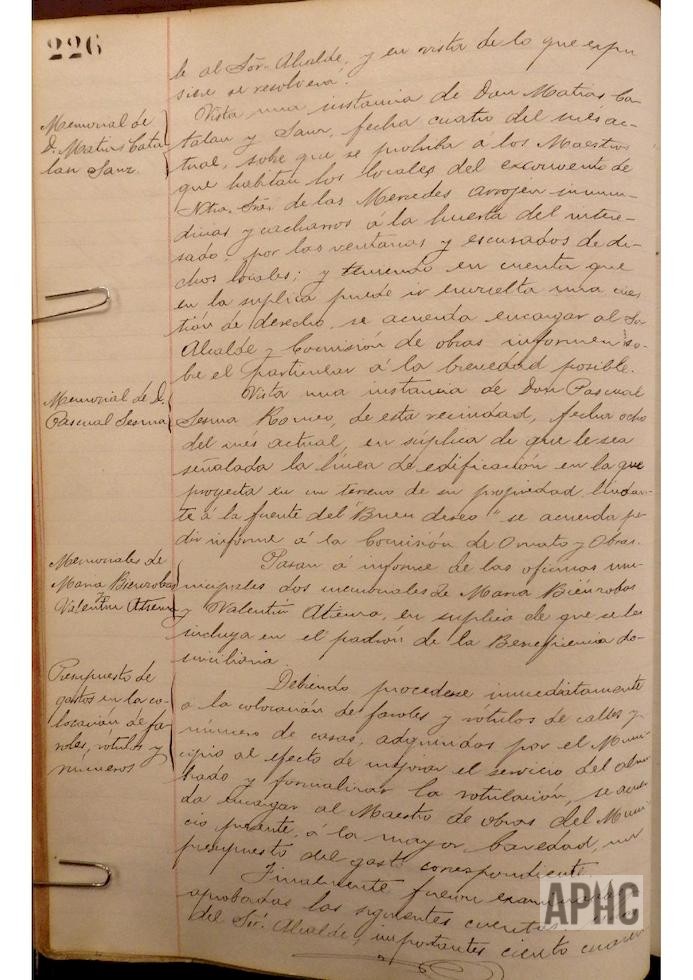 226
le al Sor. Alcalde, y en vista de lo que expu
siere se resolverá.
Memorial de
D. Matias Cata
lan Sanz.
Vista una instancia de Don Matias Ca-
talan y Sanz, fecha cuatro del mes ac-
tual, sobre que se prohiba á los Maestros
que habitan los locales del exconvento de
Ntra. Sra. de las Mercedes arrojen inmun-
dicias y cacharros á la huerta del intere-
sado, por las ventanas y escusados de di-
chos locales; y teniendo en cuenta que
en la súplica puede ir envuelta una cues
tión de derecho, se acuerda encargar al Sor
Alcalde y Comision de obras informen so-
be el particular á la brevedad posible.
Memorial de D.
Pascual Sesma
Vista una instancia de Don Pascual
Sesma Romeo, de esta vecindad, fecha ocho
del mes actual, en súplica de que le sea
señalada la línea de edificación en la que
proyecta en un terreno de su propiedad lindan-
te á la fuente del "Buen deseo" se acuerda pe-
dir informe á la Comisión de Ornato y Obras.
Memoriales de
Maria Bienrobas
y
Valentin Atienza
Pasan á informe de las oficinas mu-
nicipales dos memoriales de Maria Bienrobas
y Valentín Atienza, en súplica de que se les
incluya en el padrón de la Beneficencia do-
miciliaria.
Presupuesto de
gastos en la co-
locación de fa-
roles, rótulos y
números
Debiendo procederse inmediatamente
á la colocación de faroles y rótulos de calles y
número de casas, adquiridos por el Muni-
cipio al efecto de mejorar el servicio del alum
brado y formalizar la rotulación, se acuer-
da encargar al Maestro de obras del Muni-
cio presente, á la mayor brevedad, un
presupuesto del gasto correspondiente.
Finalmente fueron examinadas
aprobadas las siguientes cuentas:
del Sor. Alcalde, importantes ciento cuaren
APHC